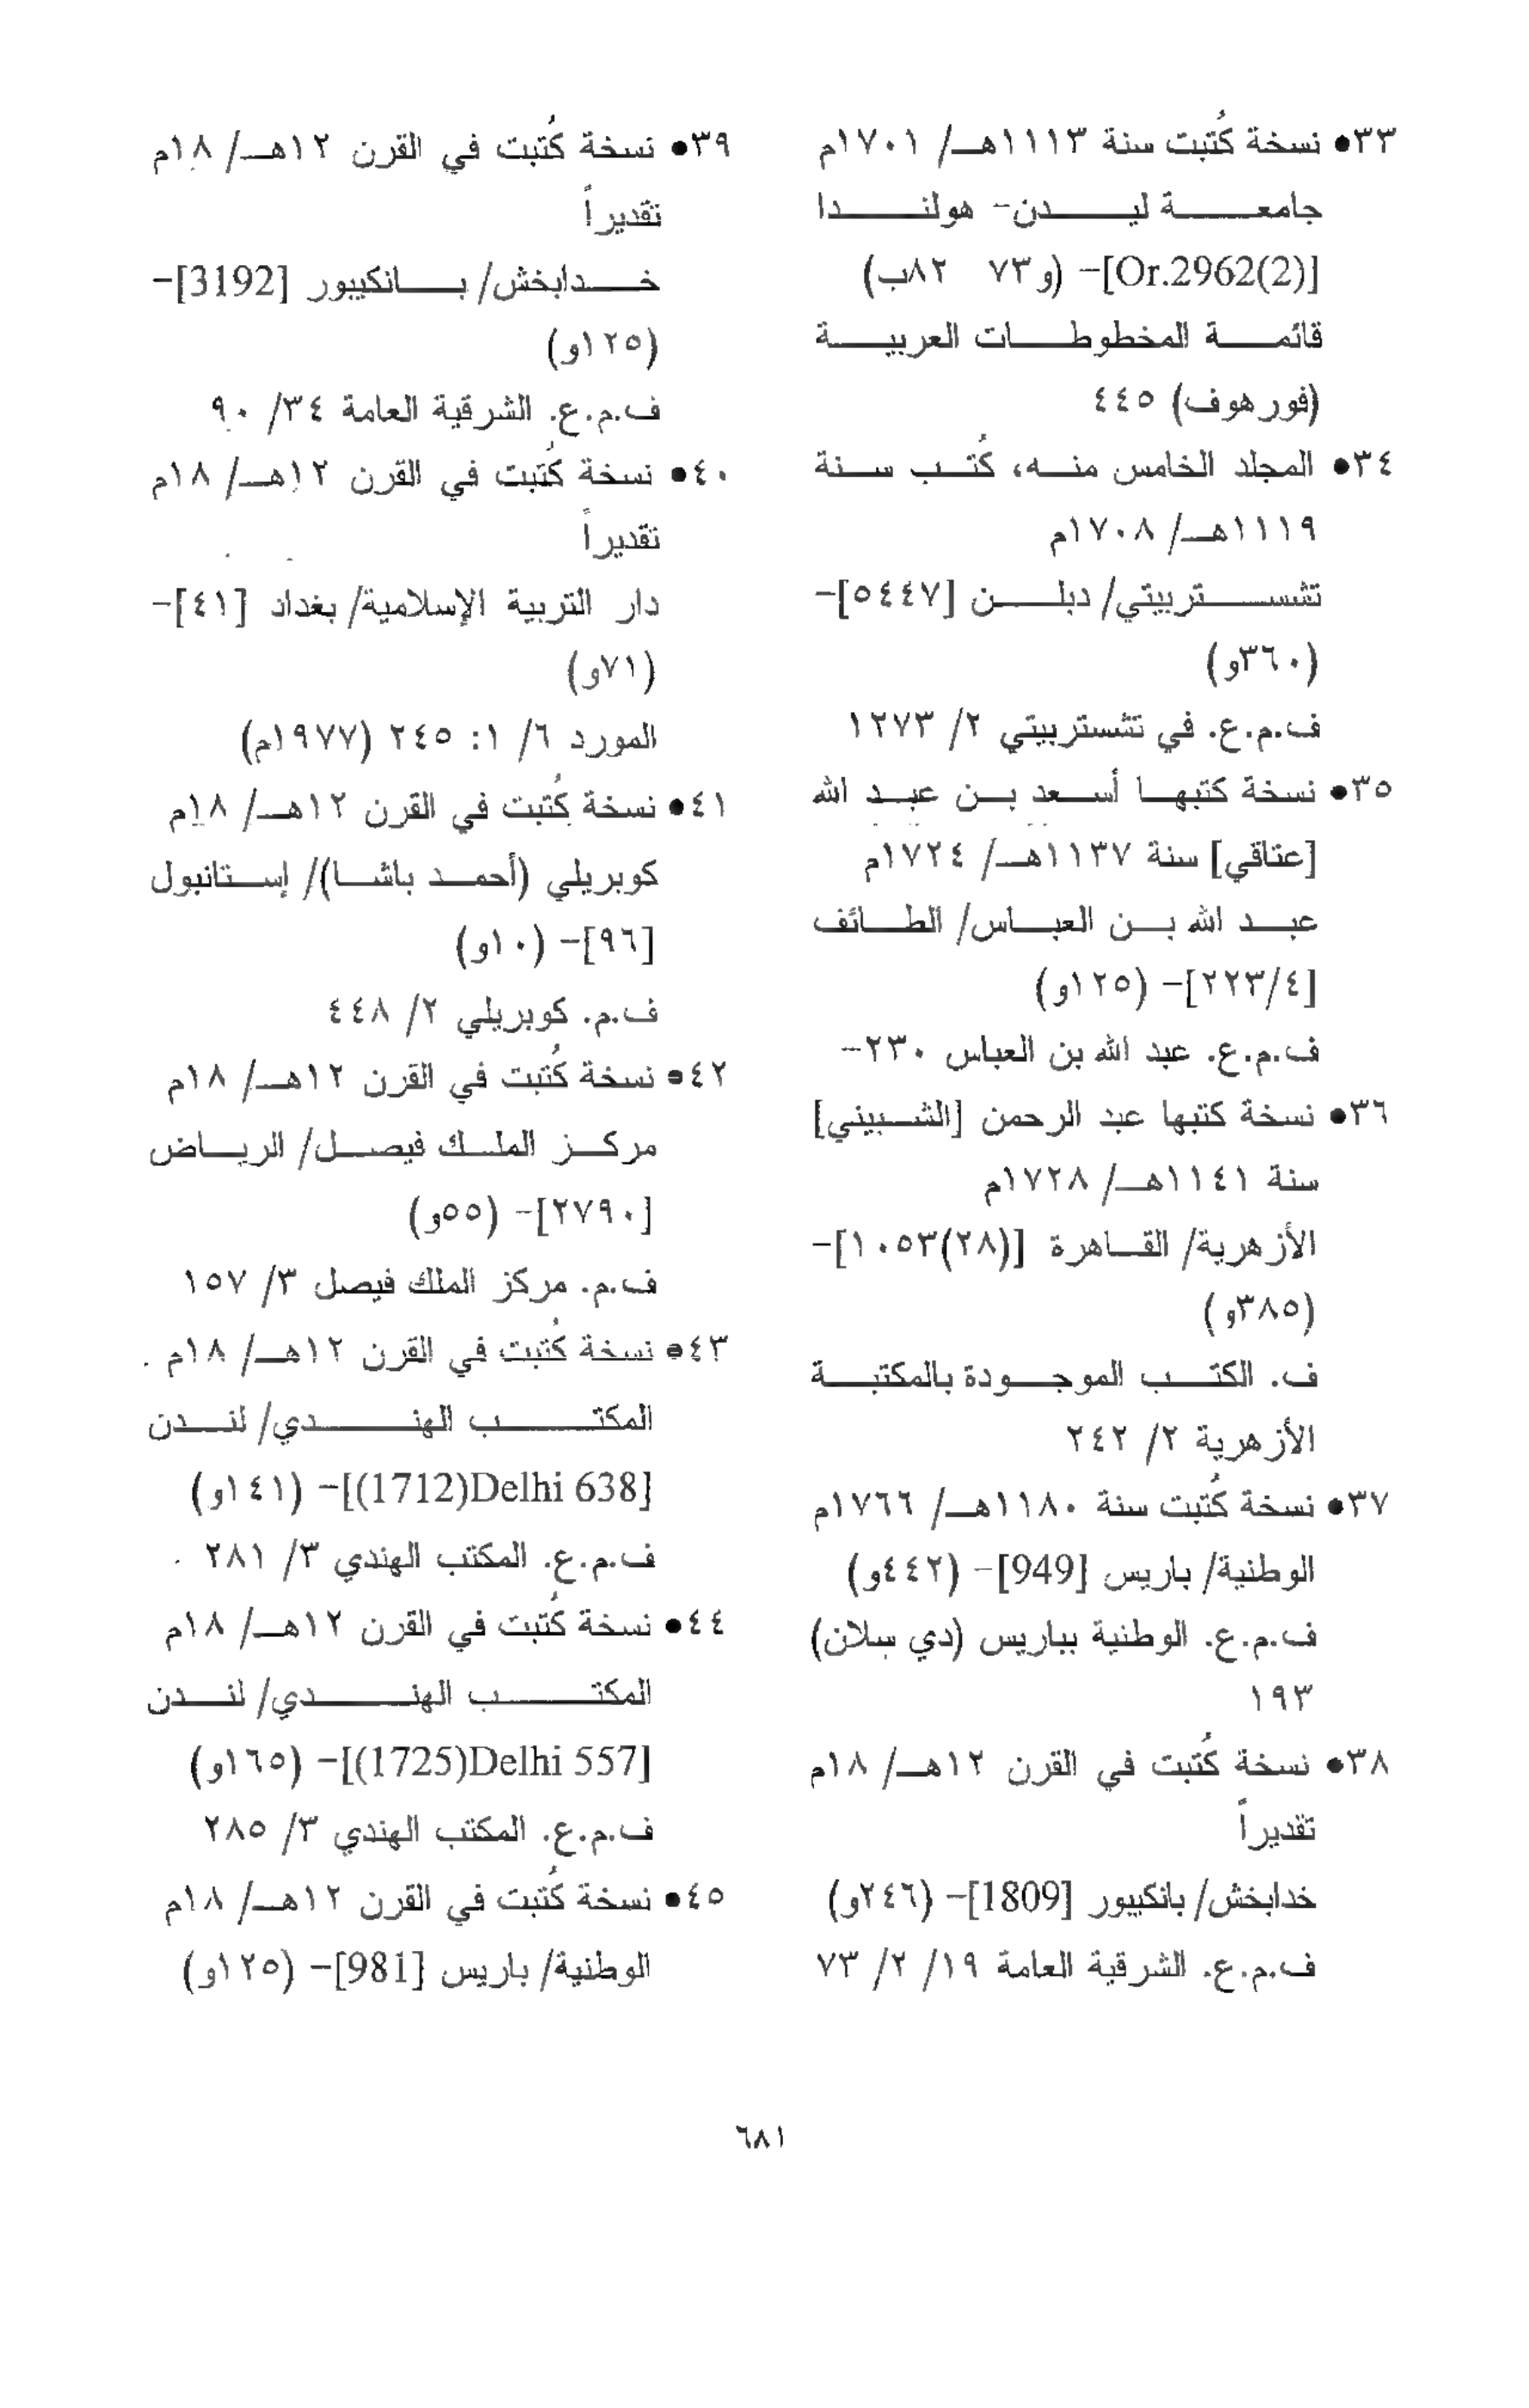 ٣٣• نسخة كُتبت سنة ١١١٣هـ/ ١٧٠١م
جامعة ليدن- هولندا
[Or.2962(2)]- (و٧٣ ٨٢ب)
قائمة المخطوطات العربية
(فورهوف) ٤٤٥
٣٤• المجلد الخامس منه، كُتب سنة
١١١٩هـ/ ١٧٠٨م
تشستربيتي/ دبلن [٥٤٤٧]-
(٣٦٠و)
ف.م.ع. في تشستربيتي ٢/ ١٢٧٣
٣٥• نسخة كتبها أسعد بن عبد الله
[عتاقي] سنة ١١٣٧هـ/ ١٧٢٤م
عبد الله بن العباس/ الطائف
[٢٢٣/٤]- (١٢٥و)
ف.م.ع. عبد الله بن العباس ٢٣٠-
٣٦• نسخة كتبها عبد الرحمن [الشبيني]
سنة ١١٤١هـ/ ١٧٢٨م
الأزهرية/ القاهرة [(٢٨)١٠٥٣]-
(٣٨٥و)
ف. الكتب الموجودة بالمكتبة
الأزهرية ٢/ ٢٤٢
٣٧• نسخة كُتبت سنة ١١٨٠هـ/ ١٧٦٦م
الوطنية/ باريس [949]- (٤٤٢و)
ف.م.ع. الوطنية بباريس (دي سلان)
١٩٣
٣٨• نسخة كُتبت في القرن ١٢هـ/ ١٨م
تقديراً
خدابخش/ بانكيبور [1809]- (٢٤٦و)
ف.م.ع. الشرقية العامة ١٩/ ٢/ ٧٣
٣٩• نسخة كُتبت في القرن ١٢هـ/ ١٨م
تقديراً
خدابخش/ بانكيبور [3192]-
(١٢٥و)
ف.م.ع. الشرقية العامة ٣٤/ ٩٠
٤٠• نسخة كُتبت في القرن ١٢هـ/ ١٨م
تقديراً
دار التربية الإسلامية/ بغداد [٤١]-
(٧١و)
المورد ٦/ ١: ٢٤٥ (١٩٧٧م)
٤١• نسخة كُتبت في القرن ١٢هـ/ ١٨م
كوبريلي (أحمد باشا)/ إستانبول
[٩٦]- (١٠و)
ف.م. كوبريلي ٢/ ٤٤٨
٤٢• نسخة كُتبت في القرن ١٢هـ/ ١٨م
مركز الملك فيصل/ الرياض
[٢٧٩٠]- (٥٥و)
ف.م. مركز الملك فيصل ٣/ ١٥٧
٤٣• نسخة كُتبت في القرن ١٢هـ/ ١٨م
المكتب الهندي/ لندن
[Delhi 638(1712)]- (١٤١و)
ف.م.ع. المكتب الهندي ٣/ ٢٨١
٤٤• نسخة كُتبت في القرن ١٢هـ/ ١٨م
المكتب الهندي/ لندن
[Delhi 557(1725)]- (١٦٥و)
ف.م.ع. المكتب الهندي ٣/ ٢٨٥
٤٥• نسخة كُتبت في القرن ١٢هـ/ ١٨م
الوطنية/ باريس [981]- (١٢٥و)
٦٨١